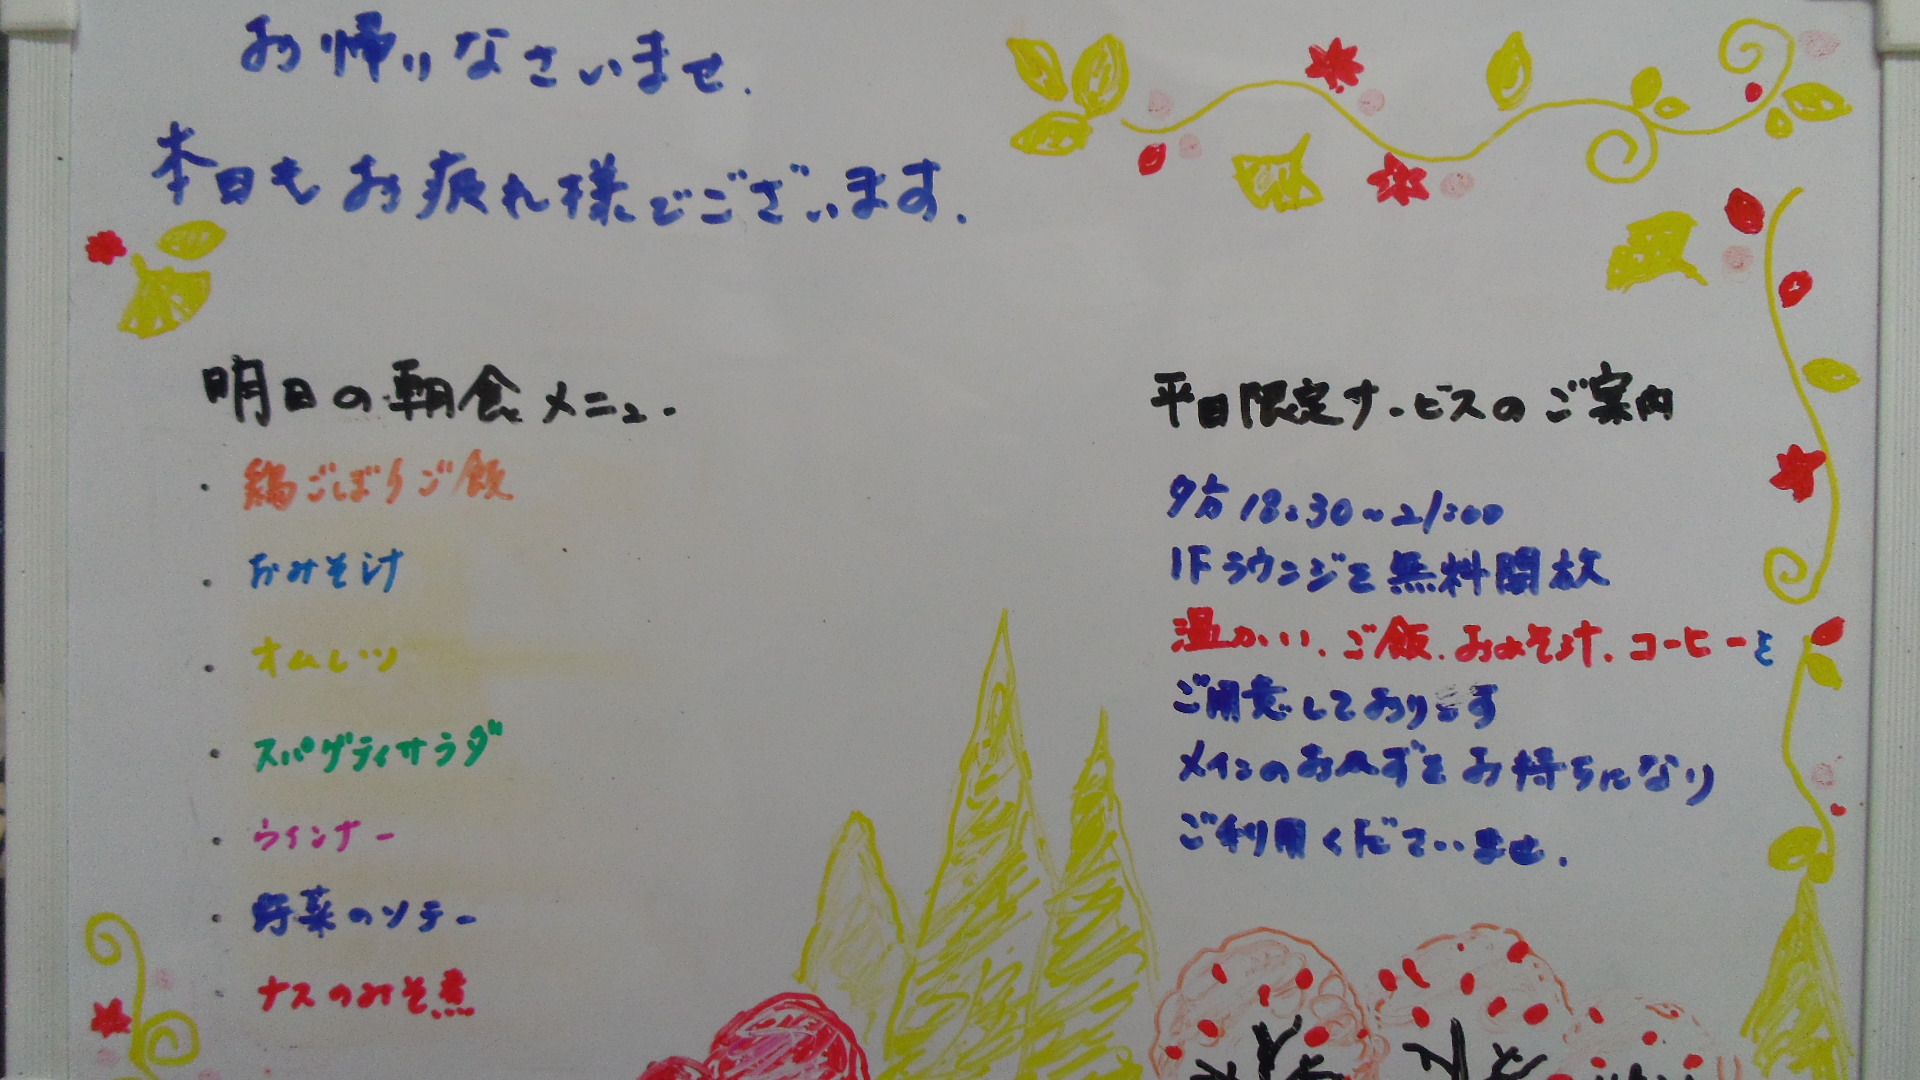 お帰りなさいませ.
本日もお疲れ様でございます.
明日の朝食メニュー
・鶏ごぼうご飯
・おみそ汁
・オムレツ
・スパゲティサラダ
・ウインナー
・野菜のソテー
・ナスのみそ煮
平日限定サービスのご案内
夕方18:30~21:00
1Fラウンジを無料開放
温かい、ご飯.おみそ汁.コーヒーを
ご用意しております
メインのおかずをお持ちになり
ご利用くださいませ.